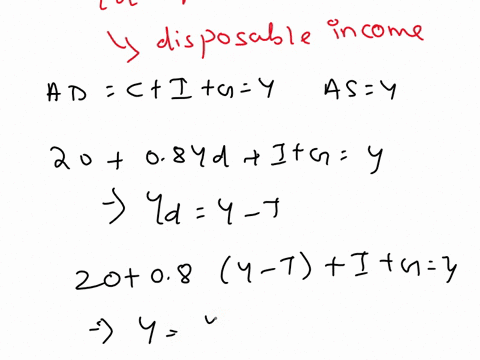 ↳ disposable income
AD = C+I+G=Y AS=Y
20 + 0.8Yd + I+G = Y
→ Yd = Y-T
20+0.8 (Y-T) + I+G=Y
→ Y =